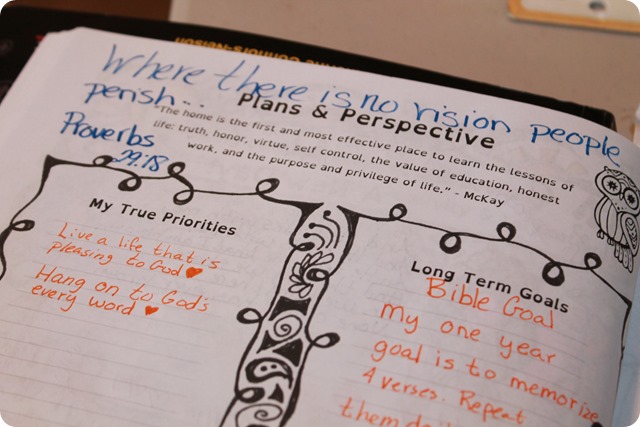 Where there is no vision people
perish...
Plans & Perspective
Proverbs
29:18
"The home is the first and most effective place to learn the lessons of
life: truth, honor, virtue, self control, the value of education, honest
work, and the purpose and privilege of life." - McKay
My True Priorities
Live a life that is
pleasing to God
Hang on to God's
every word
Long Term Goals
Bible Goal
my one year
goal is to memorize
4 verses. Repeat
them